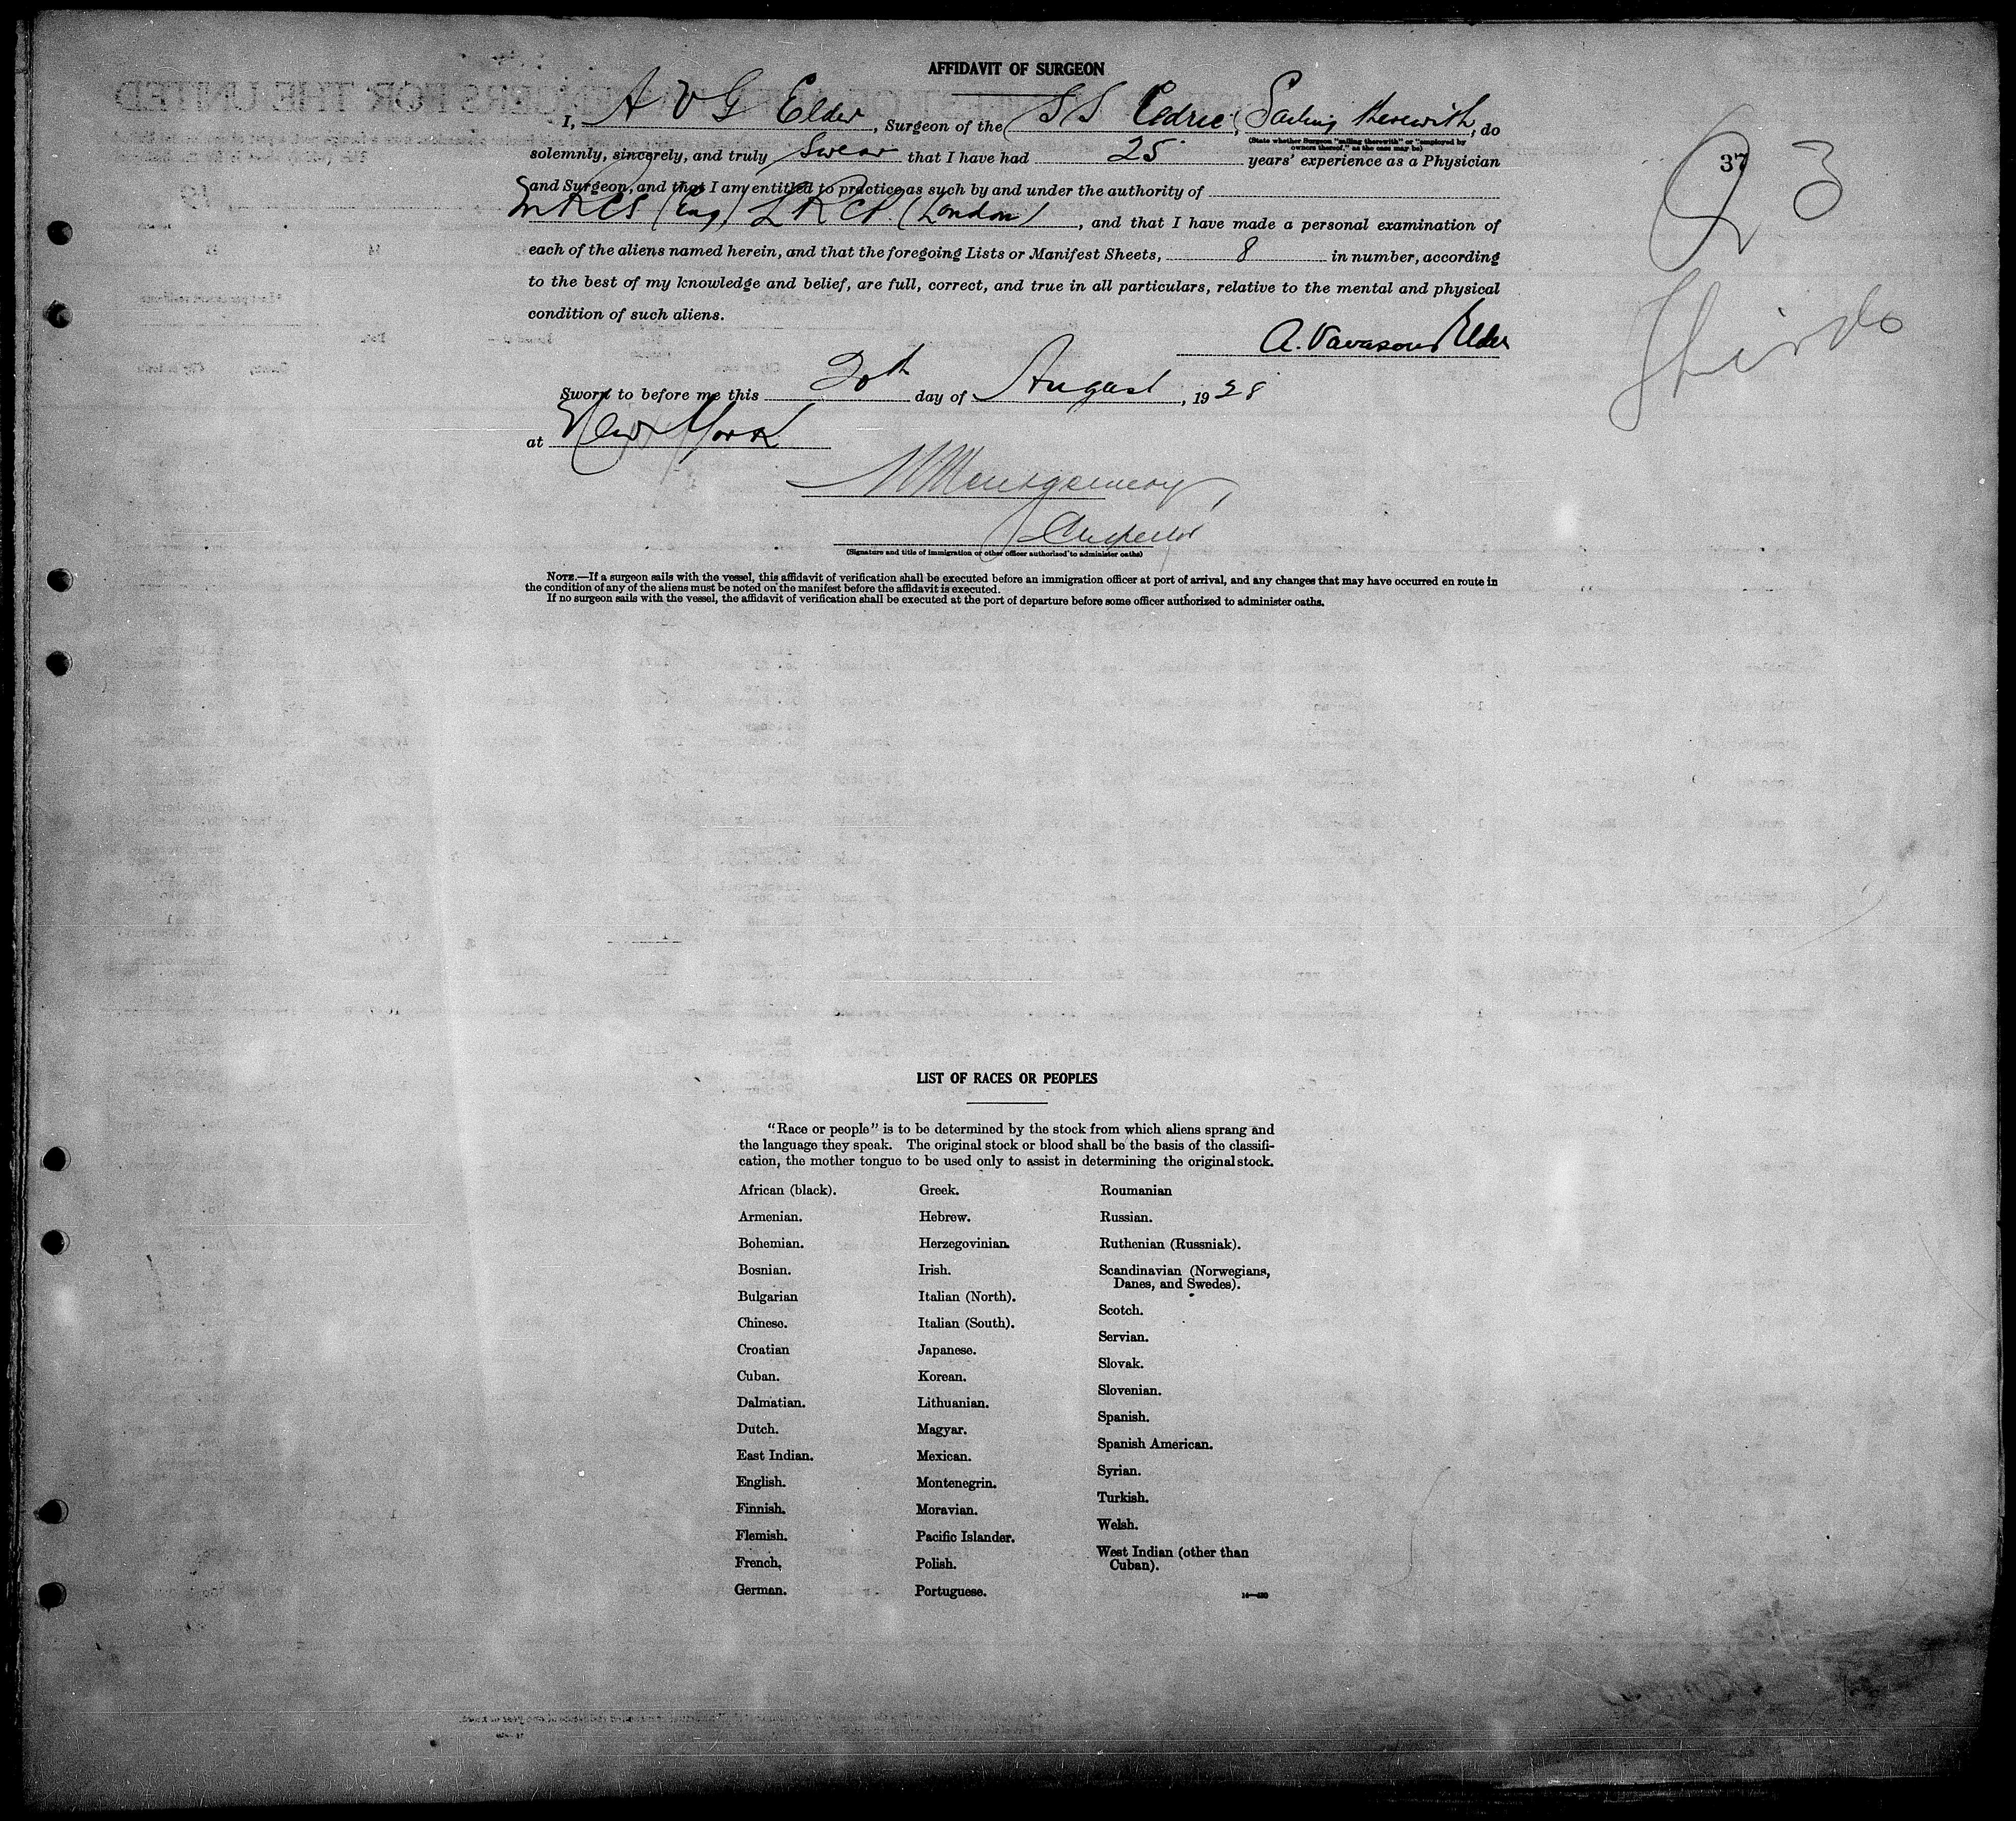 AFFIDAVIT OF SURGEON
I, A V G Elder, Surgeon of the SS Cedric, Sailing therewith, do
(State whether Surgeon "sailing therewith" or "employed by
owners thereof," as the case may be)
solemnly, sincerely, and truly swear that I have had 25 years' experience as a Physician
and Surgeon, and that I am entitled to practice as such by and under the authority of
MRCS (Eng) LRCP. (London), and that I have made a personal examination of
each of the aliens named herein, and that the foregoing Lists or Manifest Sheets, 8 in number, according
to the best of my knowledge and belief, are full, correct, and true in all particulars, relative to the mental and physical
condition of such aliens.
A. Vavasour Elder
Sworn to before me this 20th day of August, 1928
at New York
Montgomery,
Inspector
(Signature and title of immigration or other officer authorized to administer oaths)
NOTE.—If a surgeon sails with the vessel, this affidavit of verification shall be executed before an immigration officer at port of arrival, and any changes that may have occurred en route in
the condition of any of the aliens must be noted on the manifest before the affidavit is executed.
If no surgeon sails with the vessel, the affidavit of verification shall be executed at the port of departure before some officer authorized to administer oaths.
37
3
LIST OF RACES OR PEOPLES
"Race or people" is to be determined by the stock from which aliens sprang and
the language they speak. The original stock or blood shall be the basis of the classifi-
cation, the mother tongue to be used only to assist in determining the original stock.
African (black).
Armenian.
Bohemian.
Bosnian.
Bulgarian
Chinese.
Croatian
Cuban.
Dalmatian.
Dutch.
East Indian.
English.
Finnish.
Flemish.
French.
German.
Greek.
Hebrew.
Herzegovinian.
Irish.
Italian (North).
Italian (South).
Japanese.
Korean.
Lithuanian.
Magyar.
Mexican.
Montenegrin.
Moravian.
Pacific Islander.
Polish.
Portuguese.
Roumanian
Russian.
Ruthenian (Russniak).
Scandinavian (Norwegians,
Danes, and Swedes).
Scotch.
Servian.
Slovak.
Slovenian.
Spanish.
Spanish American.
Syrian.
Turkish.
Welsh.
West Indian (other than
Cuban).